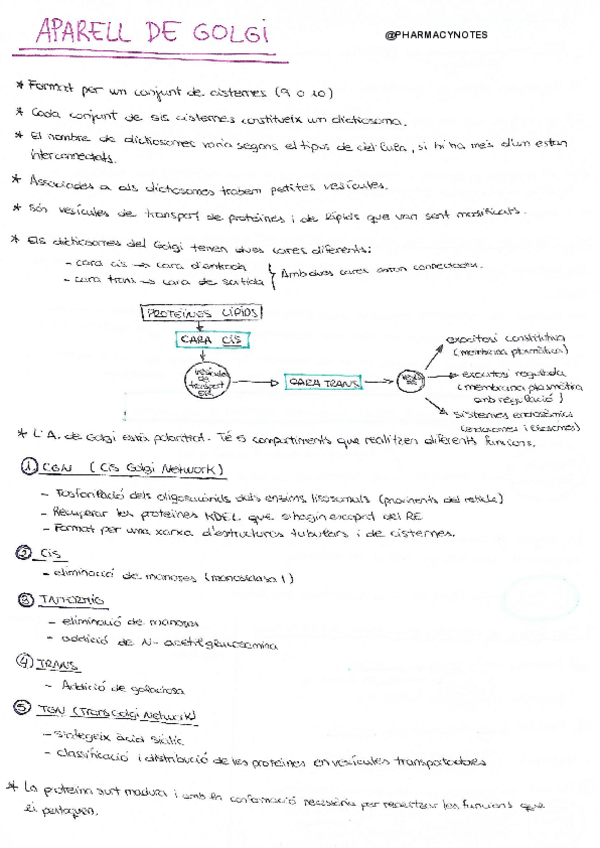 APARELL DE GOLGI
@PHARMACYNOTES
* Format per un conjunt de cisternes (9 o 10)
* Cada conjunt de cisternes constitueix un dictiosoma.
* El nombre de dictiosomes varia segons el tipus de cèl·lula, si hi ha més d'un estan
interconnectats.
* Associades a als dictiosomes trobem petites vesícules.
* Són vesícules de transport de proteïnes i de lípids que van sent modificats.
* Els dictiosomes del Golgi tenen dues cares diferents:
- cara cis → cara d'entrada
- cara trans → cara de sortida
Ambdues cares estan connectades.
PROTEÏNES LÍPIDS
CARA CIS
vesícules de transport
CARA TRANS
exocitosi constitutiva
(membrana plasmàtica)
exocitosi regulada
(membrana plasmàtica
amb regulació)
sistemes endosòmics
(endosomes i lisosomes)
* L'A. de Golgi està polaritzat. Té 5 compartiments que realitzen diferents funcions.
① CGN (Cis Golgi Network)
- Fosforilació dels oligosacàrids dels enzims lisosomals (provinents del reticle)
- Recuperar les proteïnes KDEL que s'hagin escapat del RE
- Format per una xarxa d'estructures tubulars i de cisternes.
② Cis
- eliminació de manoses (manosidasa 1)
③ INTERMIG
- eliminació de manoses
- addició de N-acetilglucosamina
④ TRANS
- Addició de galactosa
⑤ TGN (Trans Golgi Network)
- sintegeix àcid siàlic
- classificació i distribució de les proteïnes en vesícules transportadores
* La proteïna surt madura i amb en conformació necessària per realitzar les funcions que
li pertoquen.